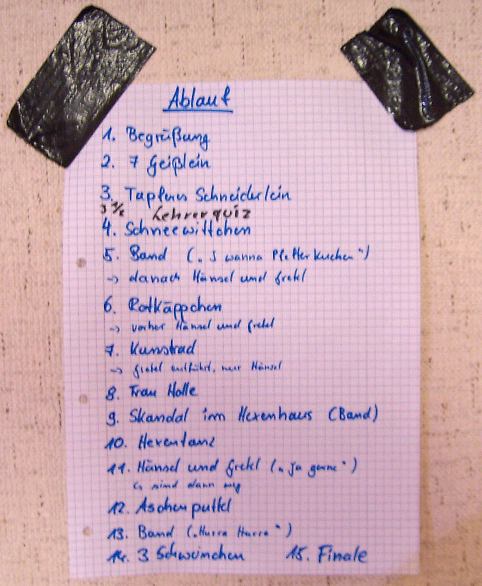 Ablauf
1. Begrüßung
2. 7 Geißlein
3. Tapferes Schneiderlein
3 1/2 Lehrerquiz
4. Schneewittchen
5. Band („I wanna Pfefferkuchen")
→ danach Hänsel und Gretel
6. Rotkäppchen
→ vorher Hänsel und Gretel
7. Kunstrad
→ Gretel entführt, nur Hänsel
8. Frau Holle
9. Skandal im Hexenhaus (Band)
10. Hexentanz
11. Hänsel und Gretel („Ja gerne")
↳ sind dann weg
12. Aschenputtel
13. Band („Hurra Hurra")
14. 3 Schweinchen 15. Finale